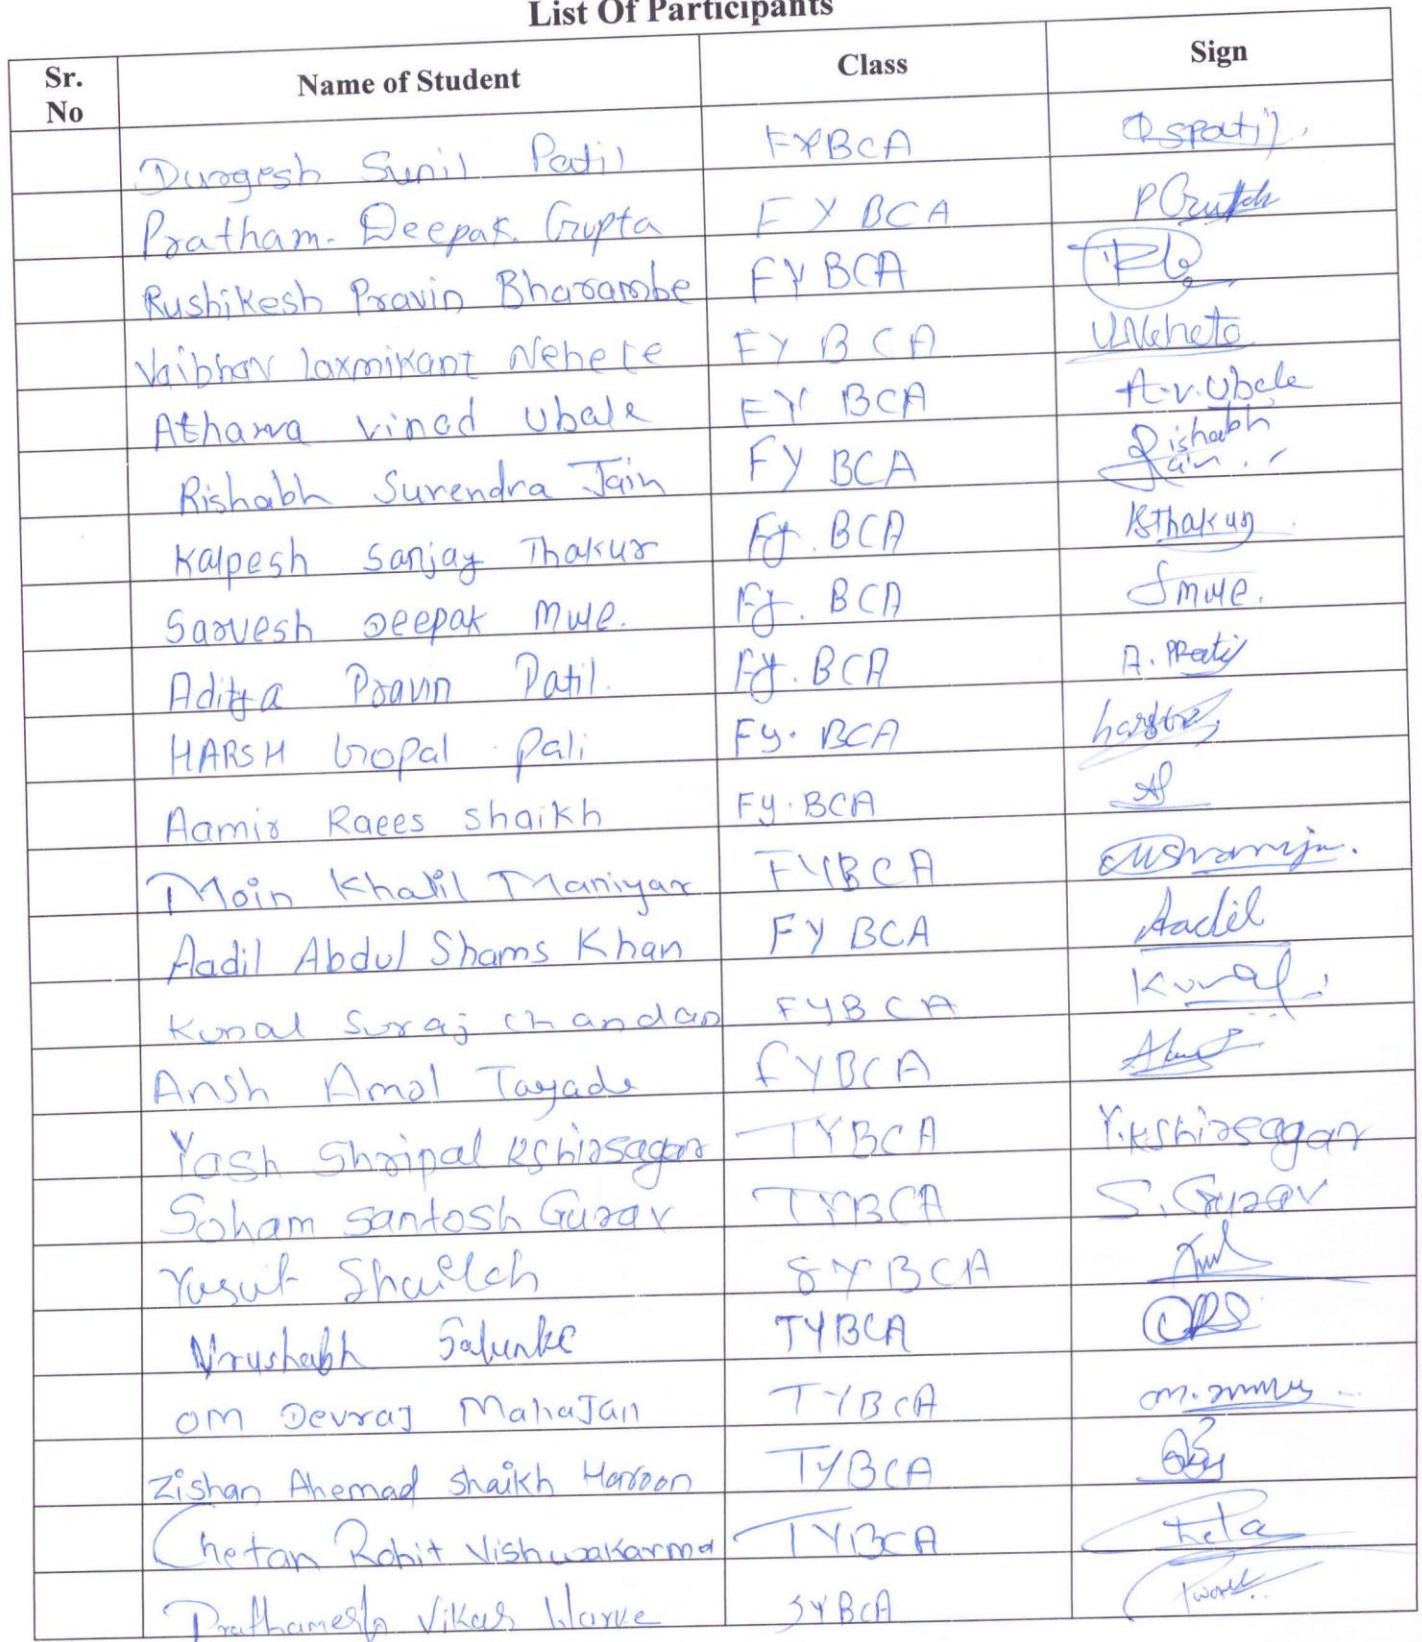 List Of Participants
Sr. No Name of Student Class Sign
Durgesh Sunil Patil FYBCA DSPatil.
Pratham. Deepak. Gupta FY BCA
Rushikesh Pravin Bharambe FY BCA
Vaibhav Laxmikant Nehete FY BCA VNehete
Atharva Vinod Ubale FY BCA A.V.Ubale
Rishabh Surendra Jain FY BCA Rishabh Jain
Kalpesh Sanjay Thakur Fy. BCA KSThakur
Sarvesh Deepak Mule. Fy. BCA Smule.
Aditya Pravin Patil. Fy. BCA A. PPatil
HARSH Gopal Pali Fy. BCA
Aamir Raees Shaikh Fy. BCA
Moin Khalil Maniyar FYBCA
Aadil Abdul Shams Khan FY BCA Aadil
Kunal Suraj Chandan FYBCA Kunal
Ansh Amol Tayade FYBCA
Yash Shripal Kshirsagar TYBCA Y.Kshirsagar
Soham Santosh Gurav TYBCA S. Gurav
Yusuf Shaikh SYBCA
Vrushabh Salunke TYBCA
Om Devraj Mahajan TYBCA
Zishan Ahemad Shaikh Haroon TYBCA
Chetan Rohit Vishwakarma TYBCA
Prathamesh Vikas Warke SYBCA